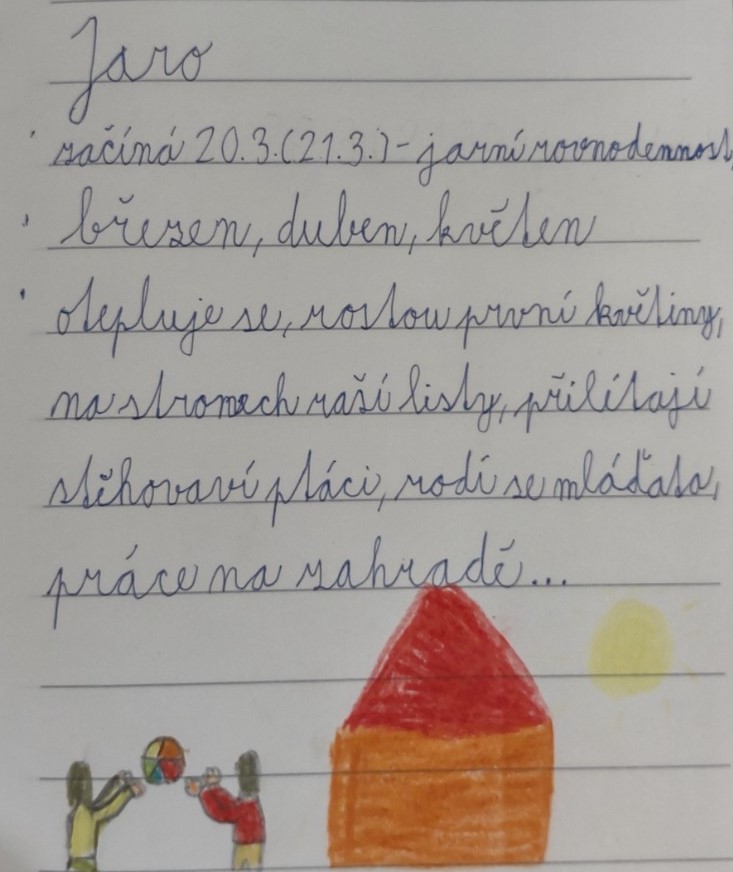 Jaro
začíná 20.3.(21.3.) - jarní rovnodennost,
březen, duben, květen
otepluje se, rostou první květiny,
na stromech raší listy, přilítají
stěhovaví ptáci, rodí se mláďata,
práce na zahradě...